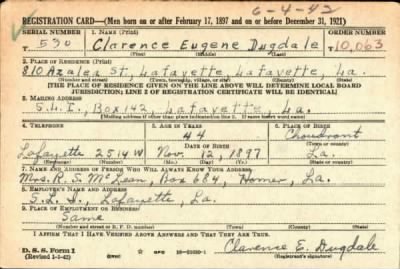 6-4-42
REGISTRATION CARD—(Men born on or after February 17, 1897 and on or before December 31, 1921)
SERIAL NUMBER 1. NAME (Print) ORDER NUMBER
T 530 Clarence Eugene Dugdale T 10,063
(First) (Middle) (Last)
2. PLACE OF RESIDENCE (Print)
810 Azalea St, Lafayette Lafayette, La.
(Number and street) (Town, township, village, or city) (County) (State)
[THE PLACE OF RESIDENCE GIVEN ON THE LINE ABOVE WILL DETERMINE LOCAL BOARD
JURISDICTION; LINE 2 OF REGISTRATION CERTIFICATE WILL BE IDENTICAL]
3. MAILING ADDRESS
S.L.I., Box 142, Lafayette, La.
[Mailing address if other than place indicated on line 2. If same insert word same]
4. TELEPHONE 5. AGE IN YEARS 6. PLACE OF BIRTH
44 Choudrant
DATE OF BIRTH (Town or county)
Lafayette 2514W Nov. 12, 1897 La.
(Exchange) (Number) (Mo.) (Day) (Yr.) (State or country)
7. NAME AND ADDRESS OF PERSON WHO WILL ALWAYS KNOW YOUR ADDRESS
Mrs. R. S. McLean, Box 684, Homer, La.
8. EMPLOYER'S NAME AND ADDRESS
S.L.I., Lafayette, La.
9. PLACE OF EMPLOYMENT OR BUSINESS
Same
(Number and street or R. F. D. number) (Town) (County) (State)
I AFFIRM THAT I HAVE VERIFIED ABOVE ANSWERS AND THAT THEY ARE TRUE.
D. S. S. Form 1
(Revised 1-1-42) (over) Clarence E. Dugdale
(Registrant's signature)